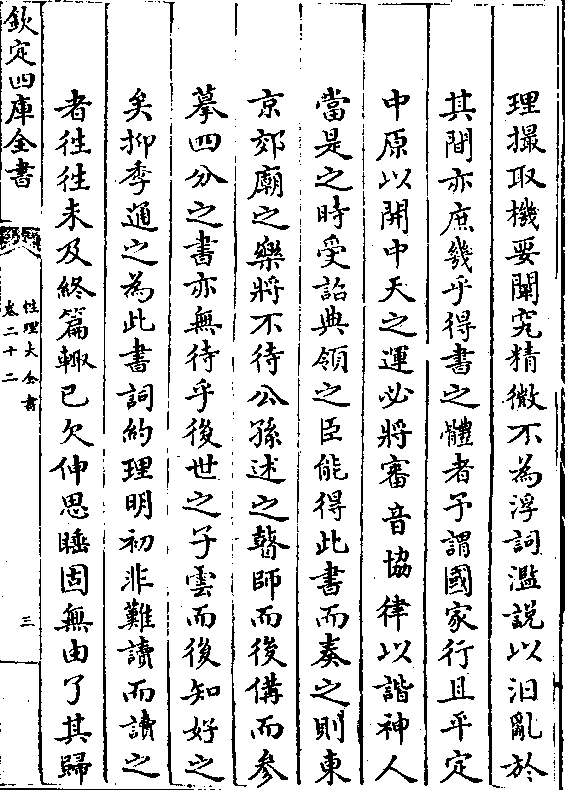 理撮取機要闡究精微不為浮詞濫說以汩亂於
其間亦庶幾乎得書之體者予謂國家行且平定
中原以開中天之運必將審音協律以諧神人
當是之時受詔典領之臣能得此書而奏之則東
京郊廟之樂將不待公孫述之瞽師而後備而參
摹四分之書亦無待乎後世之子雲而後知好之
矣抑季通之為此書詞約理明初非難讀而讀之
者往往未及終篇輙已欠伸思睡固無由了其歸
欽定四庫全書
性理大全書
卷二十二
三